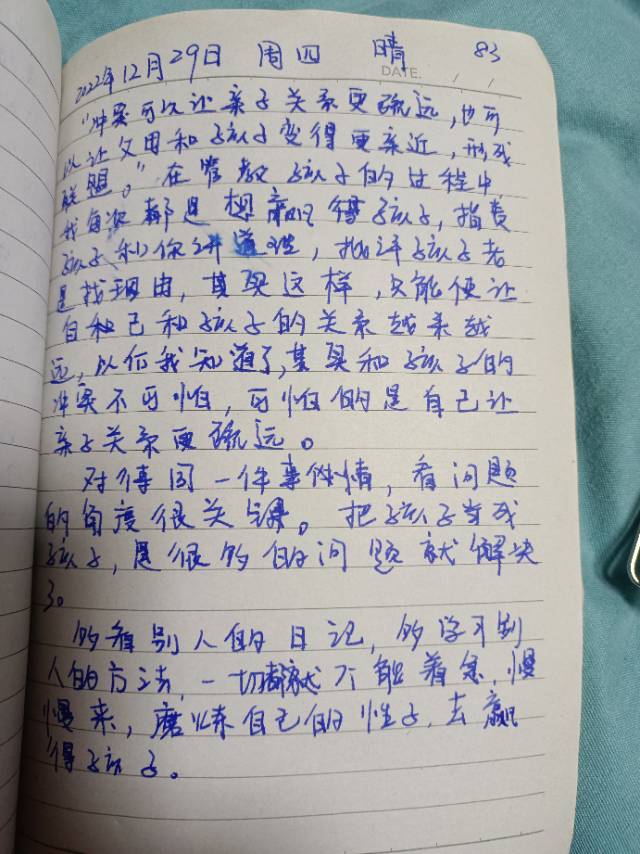 2022年12月29日 周四 晴 83
DATE. / /
"冲突可以让亲子关系更疏远,也可
以让父母和孩子变得更亲近,形成
联盟。"在管教孩子的过程中,
我每次都是想赢得孩子,指责
孩子和你讲道理,批评孩子老
是找理由,其实这样,只能使让
自和己和孩子的关系越来越
远,以后我知道了,其实和孩子的
冲突不可怕,可怕的是自己让
亲子关系更疏远。
对待同一件事件情,看问题
的角度很关键。把孩子当成
孩子,是很多的问题就解决
了。
多看别人的日记,多学习别
人的方法,一切都就不能着急,慢
慢来,磨炼自己的性子,去赢
得孩子。